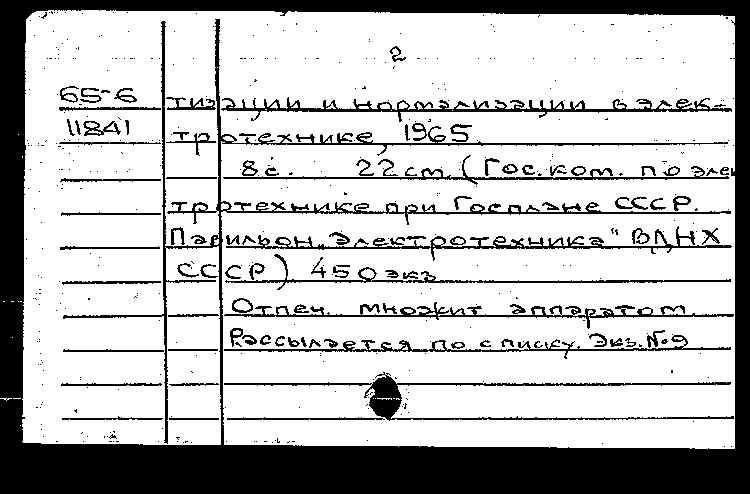 2
65-6 тизации и нормализации в элек-
11841 тротехнике, 1965.
8 с. 22 см. (Гос. ком. по элек
тротехнике при Госплане СССР.
Павильон „Электротехника" ВДНХ
СССР) 450 экз
Отпеч. множит аппаратом.
Рассылается по списку. Экз. №9